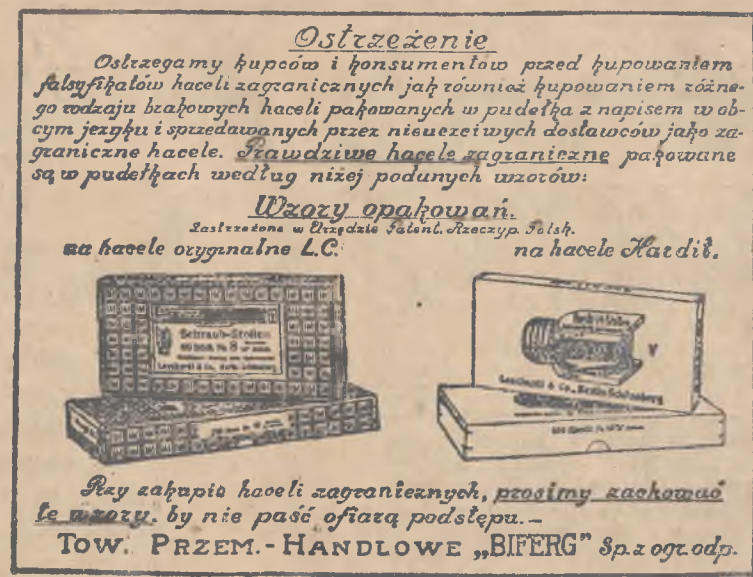 Ostrzeżenie
Ostrzegamy kupców i konsumentów przed kupowaniem
falsyfikatów haceli zagranicznych jak również kupowaniem różne-
go rodzaju brakowych haceli pakowanych w pudełka z napisem w ob-
cym języku i sprzedawanych przez nieuczciwych dostawców jako za-
graniczne hacele. Prawdziwe hacele zagraniczne pakowane
są w pudełkach według niżej podanych wzorów:
Wzory opakowań.
Zastrzeżone w Urzędzie Patent. Rzeczyp. Polsk.
na hacele oryginalne L.C.
na hacele Hardit.
Schraub-Stollen
8
Leonhardt & Co., Berlin-Schöneberg
Leonhardt & Co., Berlin-Schöneberg
Przy zakupie haceli zagranicznych, prosimy zachować
te wzory, by nie paść ofiarą podstępu.–
TOW. PRZEM.-HANDLOWE „BIFERG" Sp. z ogr. odp.